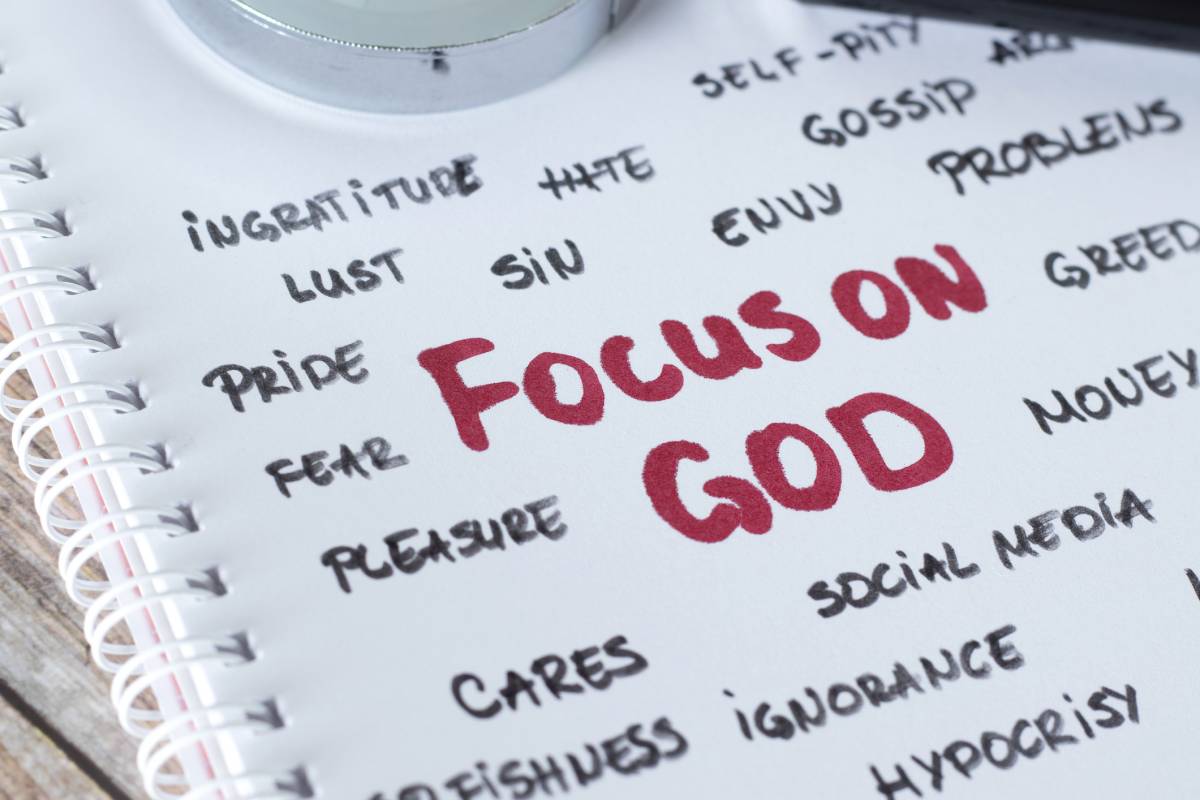 SELF-PITY
GOSSIP
INGRATITUDE HATE
PROBLENS
LUST SIN ENVY
GREED
PRIDE FOCUS ON
FEAR GOD MONEY
PLEASURE
SOCIAL MEDIA
CARES
IGNORANCE
HYPOCRISY